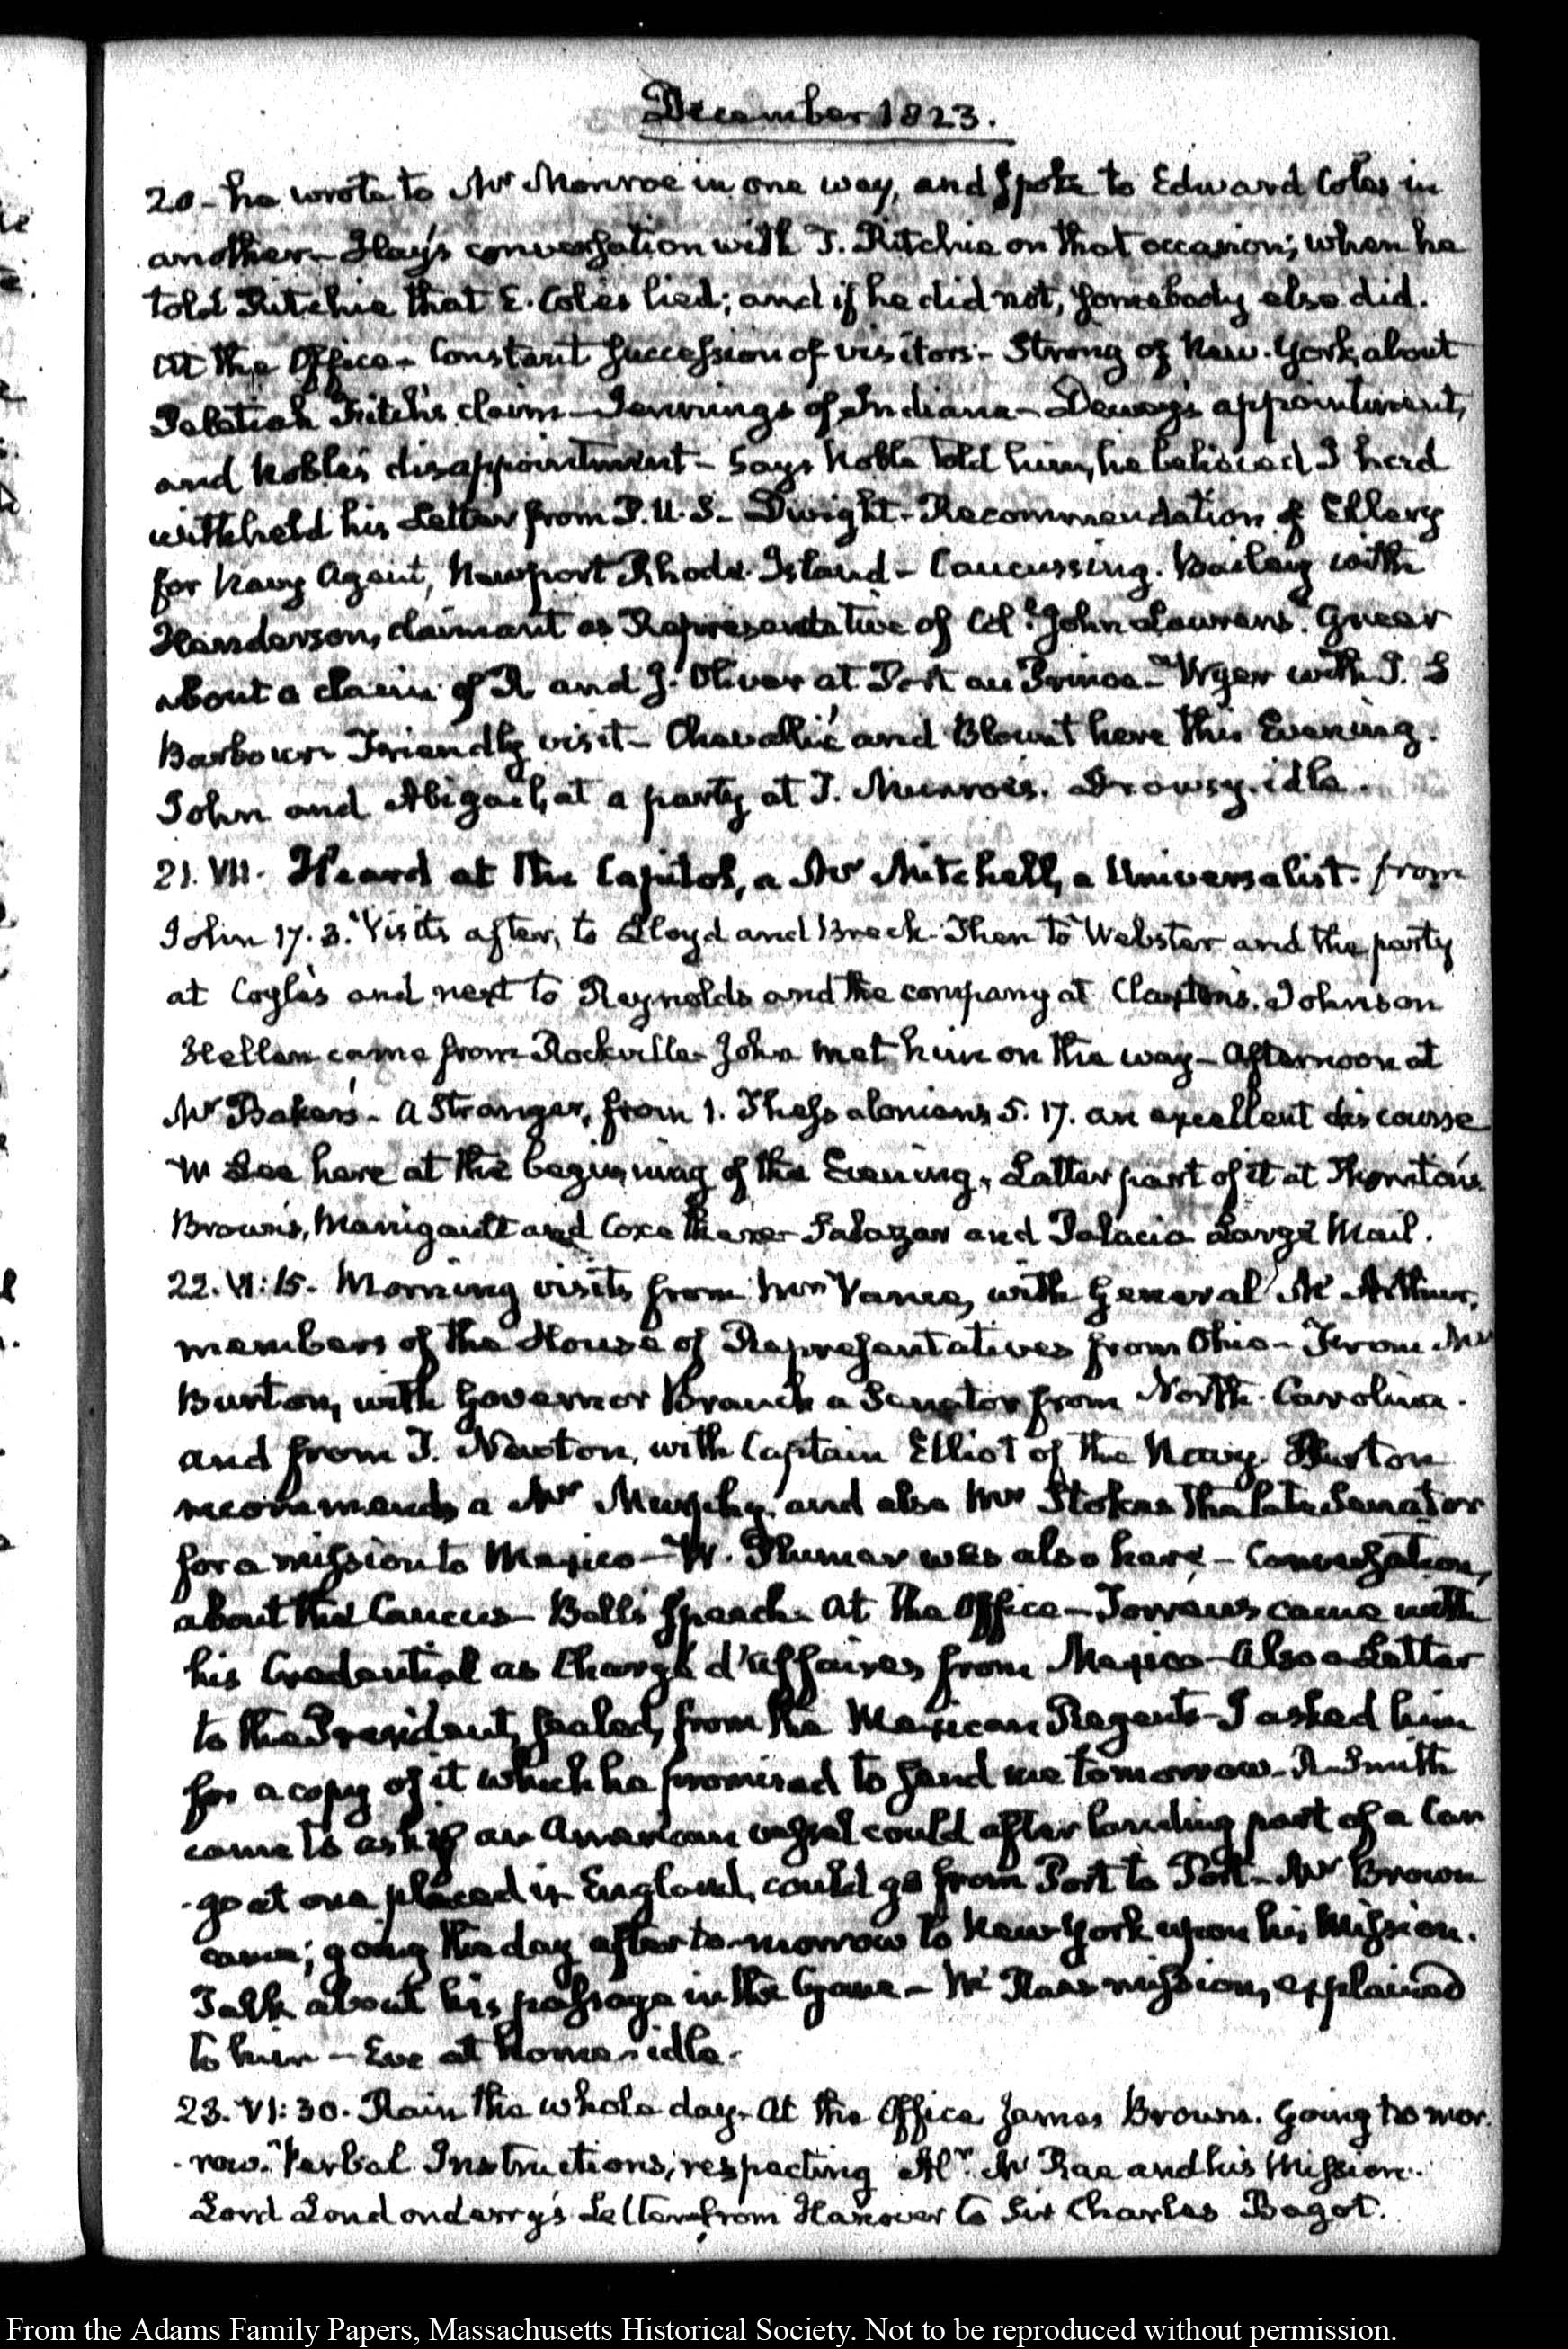 December 1823.
20 - he wrote to Mr Monroe in one way, and spoke to Edward Coles in
another - Hay's conversation with T. Ritchie on that occasion; when he
told Ritchie that E. Coles lied; and if he did not, somebody else did.
At the Office - Constant succession of visitors - Strong of New-York about
Pelatiah Fitch's claim - Jennings of Indiana - Dewey's appointment,
and Noble's disappointment - Says Noble told him, he believed I had
withheld his Letter from P.U.S. - Dwight - Recommendation of Ellery
for Navy Agent, Newport Rhode-Island - Caucussing. Bailey with
Henderson, claimant as Representative of Coll. John Laurens. Greer
about a claim of R and J. Oliver at Port au Prince - Wyer with J. S
Barbour Friendly visit - Chevallié and Blount here this Evening.
John and Abigail, at a party at T. Munroe's. Drowsy. idle.
21. VII. Heard at the Capitol, a Mr Mitchell, a Universalist. from
John 17. 3. Visits after, to Lloyd and Breck. Then to Webster and the party
at Coyle's and next to Reynolds and the company at Claxton's. Johnson
Hellen came from Rockville - John met him on the way - Afternoon at
Mr Baker's - A Stranger, from 1. Thessalonians 5. 17. an excellent discourse
W Lee here at the beginning of the Evening. Latter part of it at Thornton's
Brown's, Manigault and Coxe there - Salazar and Palacio Large Mail.
22. VI:15. Morning visits from Mr Vance, with General McArthur,
members of the House of Representatives from Ohio - From Mr
Burton, with Governor Branch a Senator from North-Carolina.
and from T. Newton, with Captain Elliot of the Navy. Burton
recommends a Mr Murphy and also Mr Stokes the late Senator
for a mission to Mexico - W. Plumer was also here - Conversation,
about the Caucus - Ball's speech. At the Office - Torrens came with
his Credential as Chargé d'Affaires from Mexico - Also a Letter
to the President, sealed, from the Mexican Regents - I asked him
for a copy of it which he promised to send me tomorrow - R. Smith
came to ask if an American vessel could after landing part of a Car
-go at one placed in England, could go from Port to Port - Mr Brown
came; going the day after to-morrow to New York upon his Mission.
Talk about his passage in the Cyane - McRae's mission, explained
to him - Eve at home - idle.
23. VI:30. Rain the whole day. At the Office James Brown. Going to mor-
-row. Verbal Instructions, respecting Al. McRae and his Mission.
Lord Londonderry's Letter from Hanover to Sir Charles Bagot.
From the Adams Family Papers, Massachusetts Historical Society. Not to be reproduced without permission.